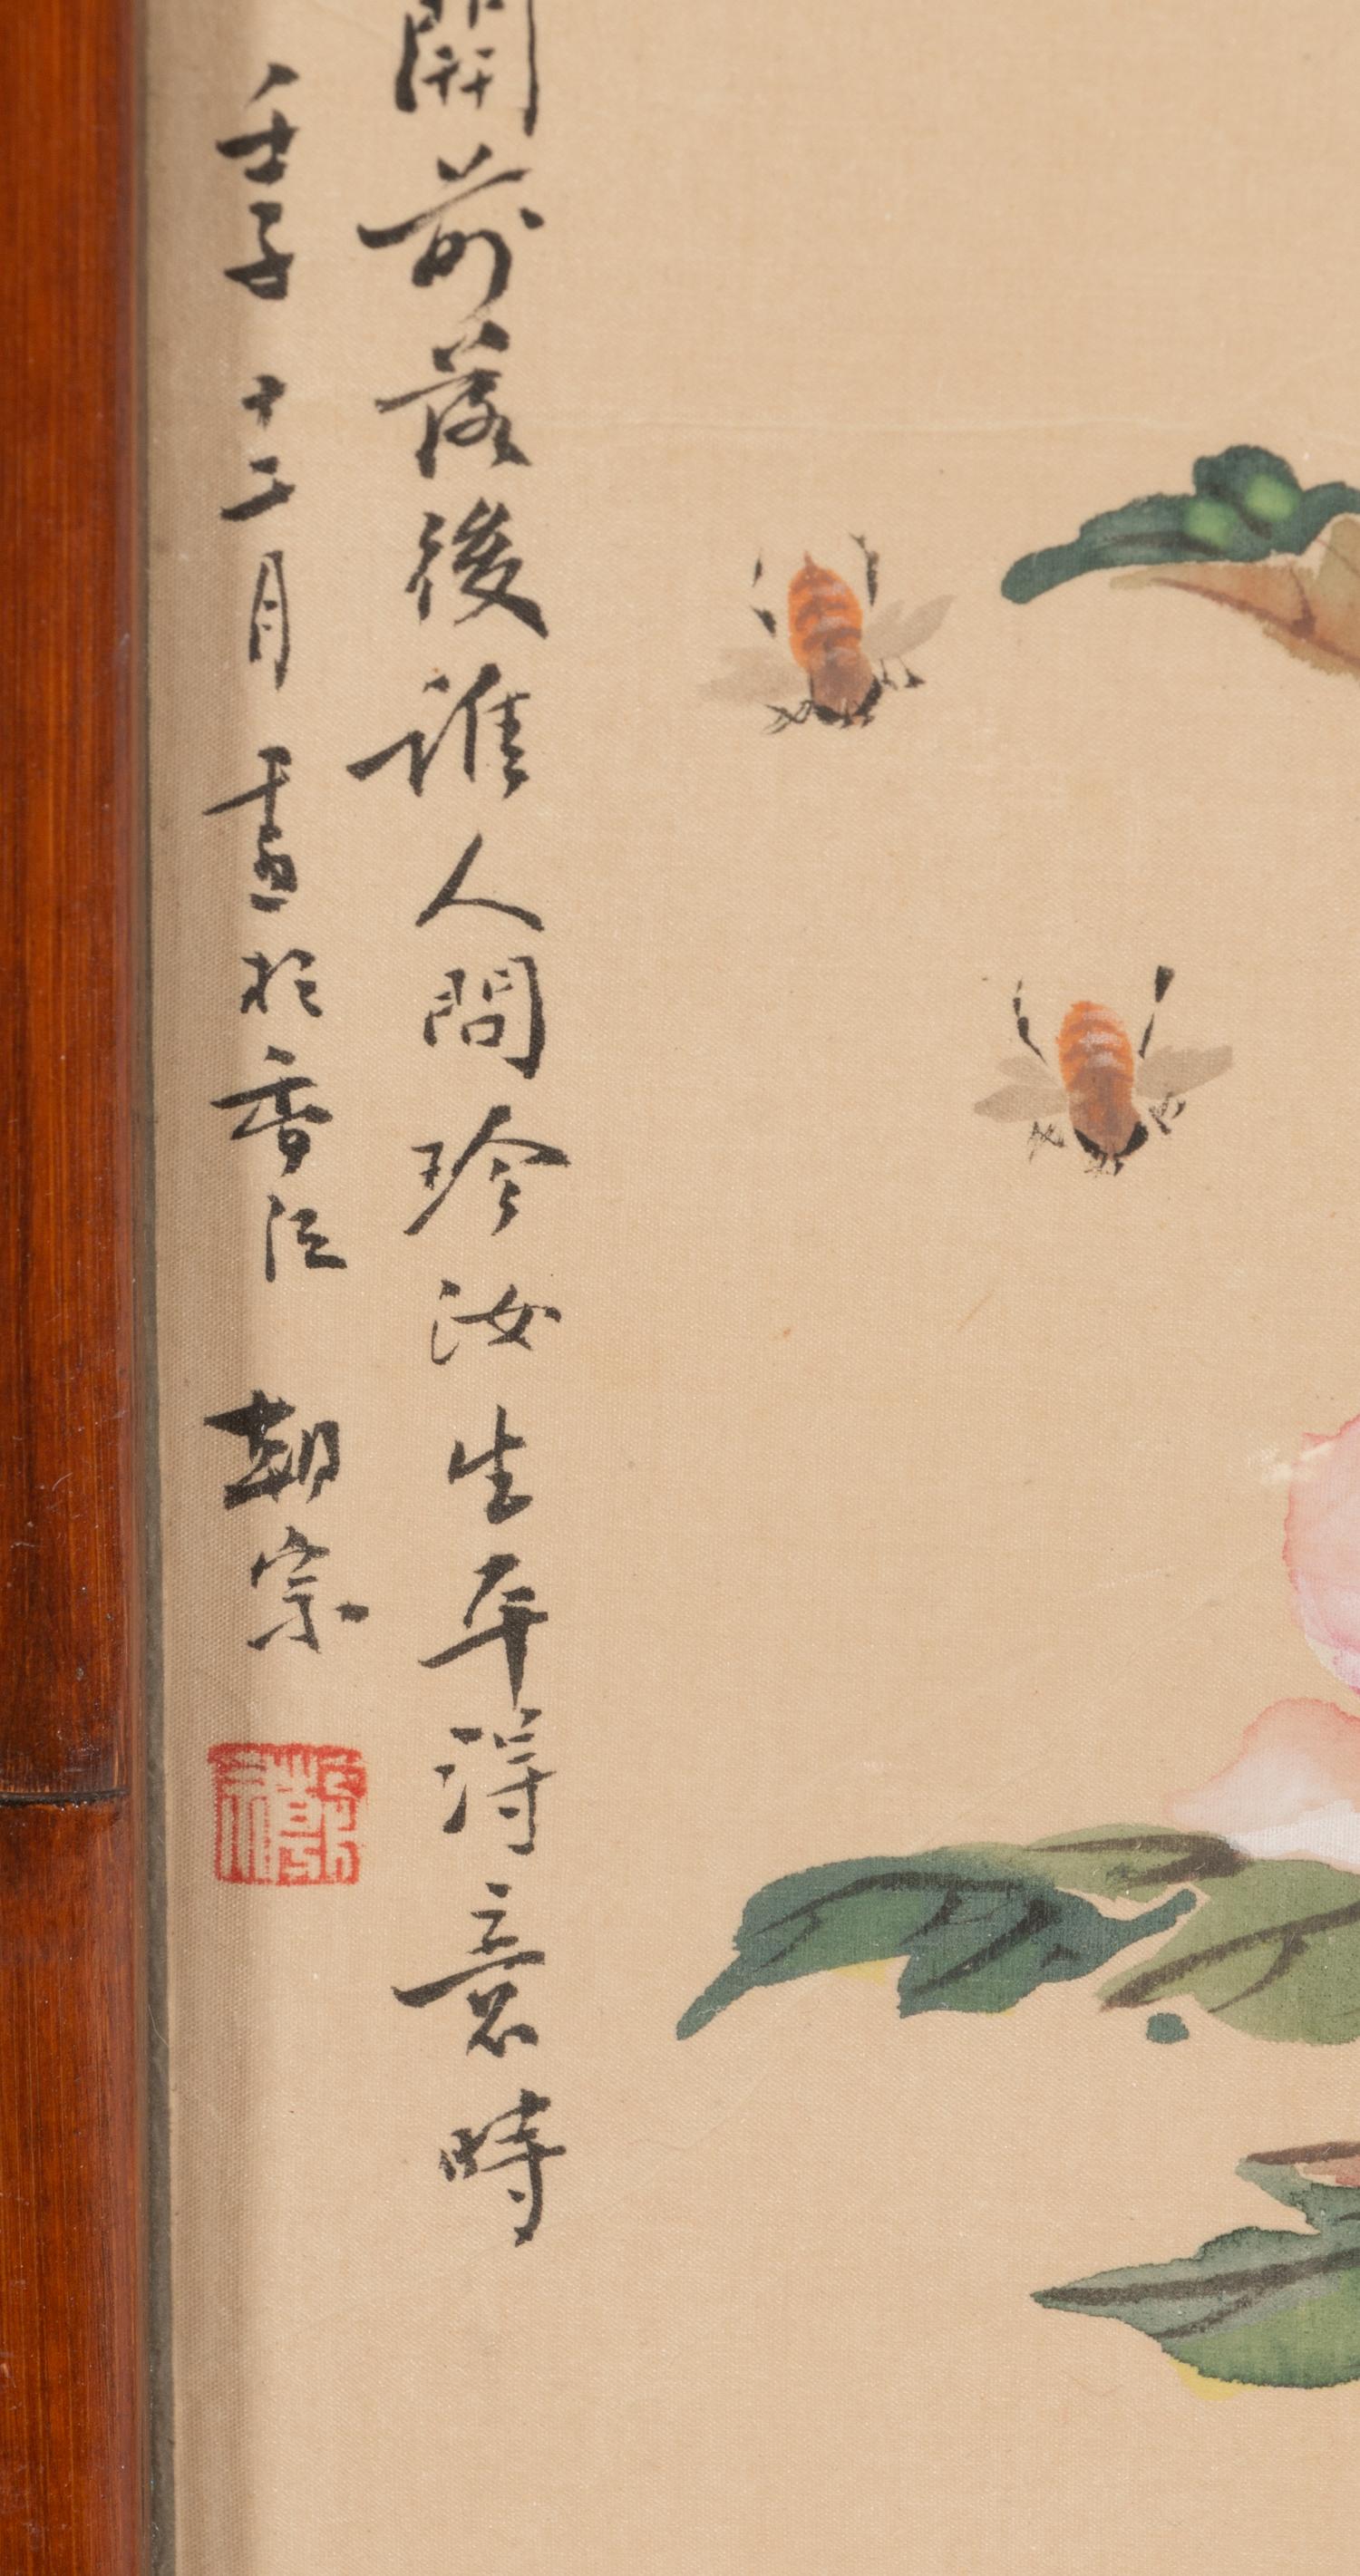 開前落後誰人問珍汝生平得意時
壬子十二月畫於香江 朝宗